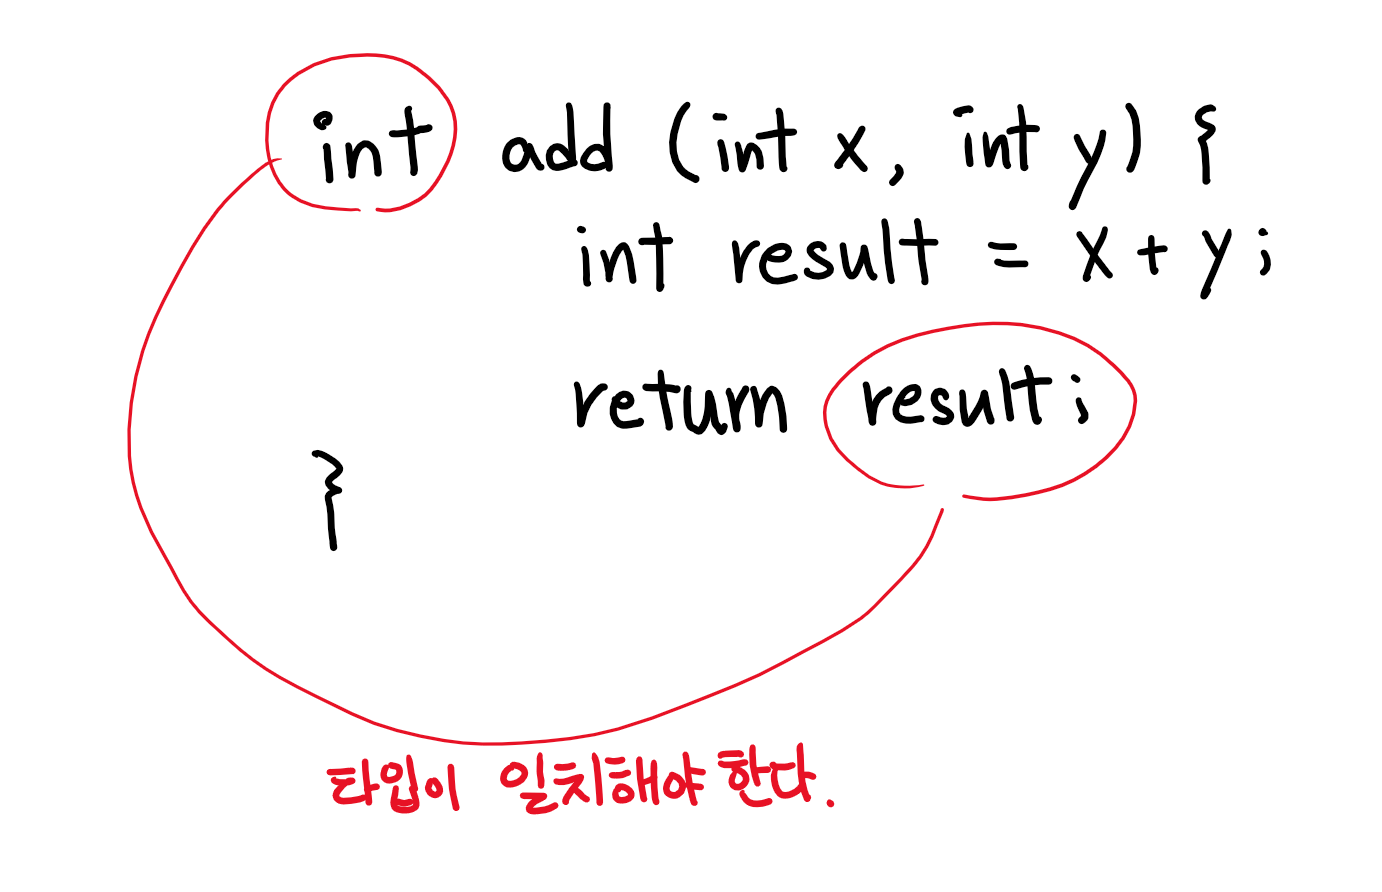 int add (int x, int y) {
int result = x + y;
return result;
}
타입이 일치해야 한다.